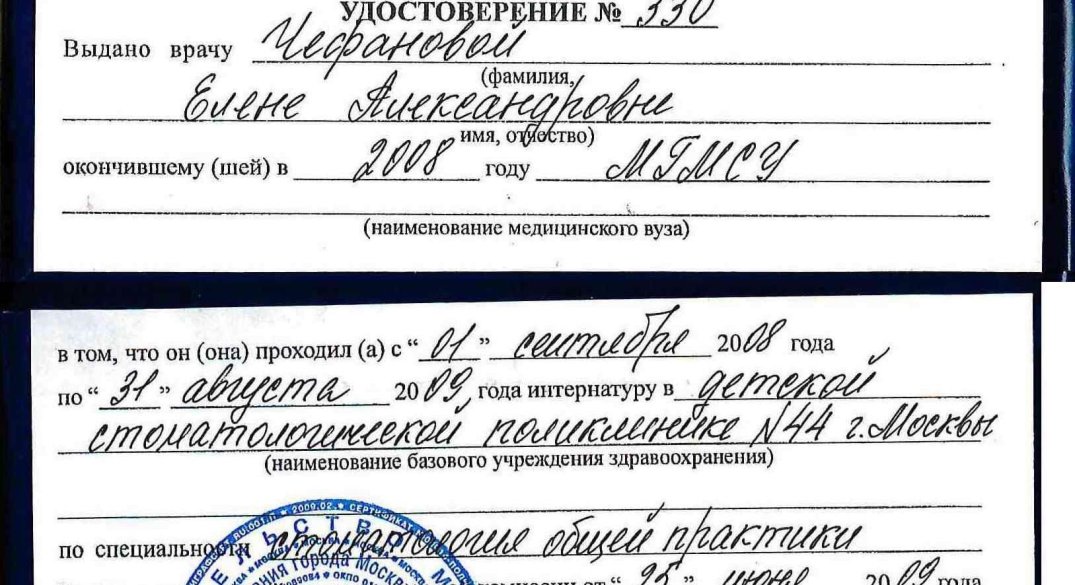 УДОСТОВЕРЕНИЕ № 330
Выдано врачу Чефановой
(фамилия,
Елене Александровне
имя, отчество)
окончившему (шей) в 2008 году МГМСУ
(наименование медицинского вуза)
в том, что он (она) проходил (а) с “ 01 ” сентября 2008 года
по “ 31 ” августа 2009 года интернатуру в детской
стоматологической поликлинике №44 г. Москвы
(наименование базового учреждения здравоохранения)
по специальности стоматология общей практики
от “ 25 ” июня 2009 года